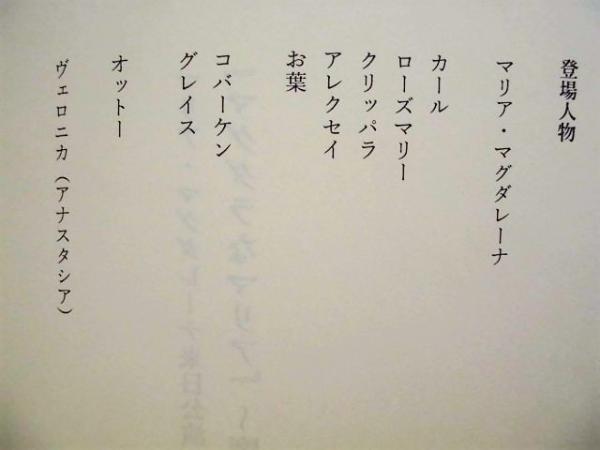 登場人物
マリア・マグダレーナ
カール
ローズマリー
クリッパラ
アレクセイ
お葉
コバーケン
グレイス
オットー
ヴェロニカ（アナスタシア）